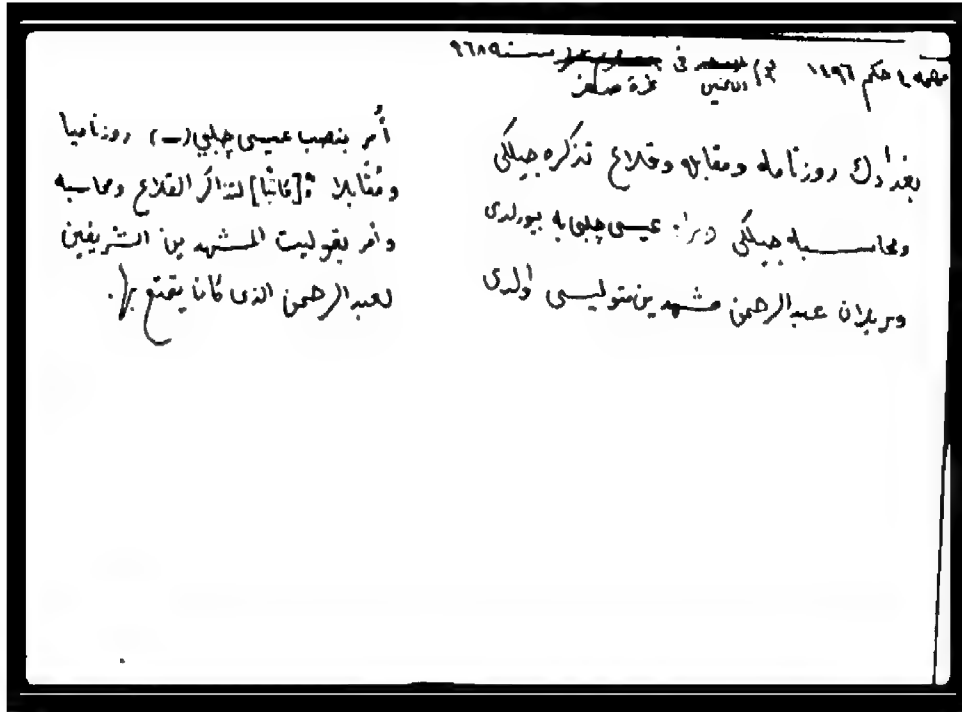 مهمه ٤ حكم ١٤٩٦ في سنة ٩٦٨
غرة صفر
بغدادك روزنامه ومقابله وقلاع تذكره جيلكى
ومحاسبه جيلكى عيسى چلبى يه بيورلدى
عبد الرحمن مشهدين متوليسى اولدى
أمر بنصب عيسى چلبي (ــ) روزناميا
ومقابلا و[كاتبا] لتذاكر القلاع ومحاسبه
وأمر بتوليت المشهدين الشريفين
لعبد الرحمن الذى كانا يتمتع بها.